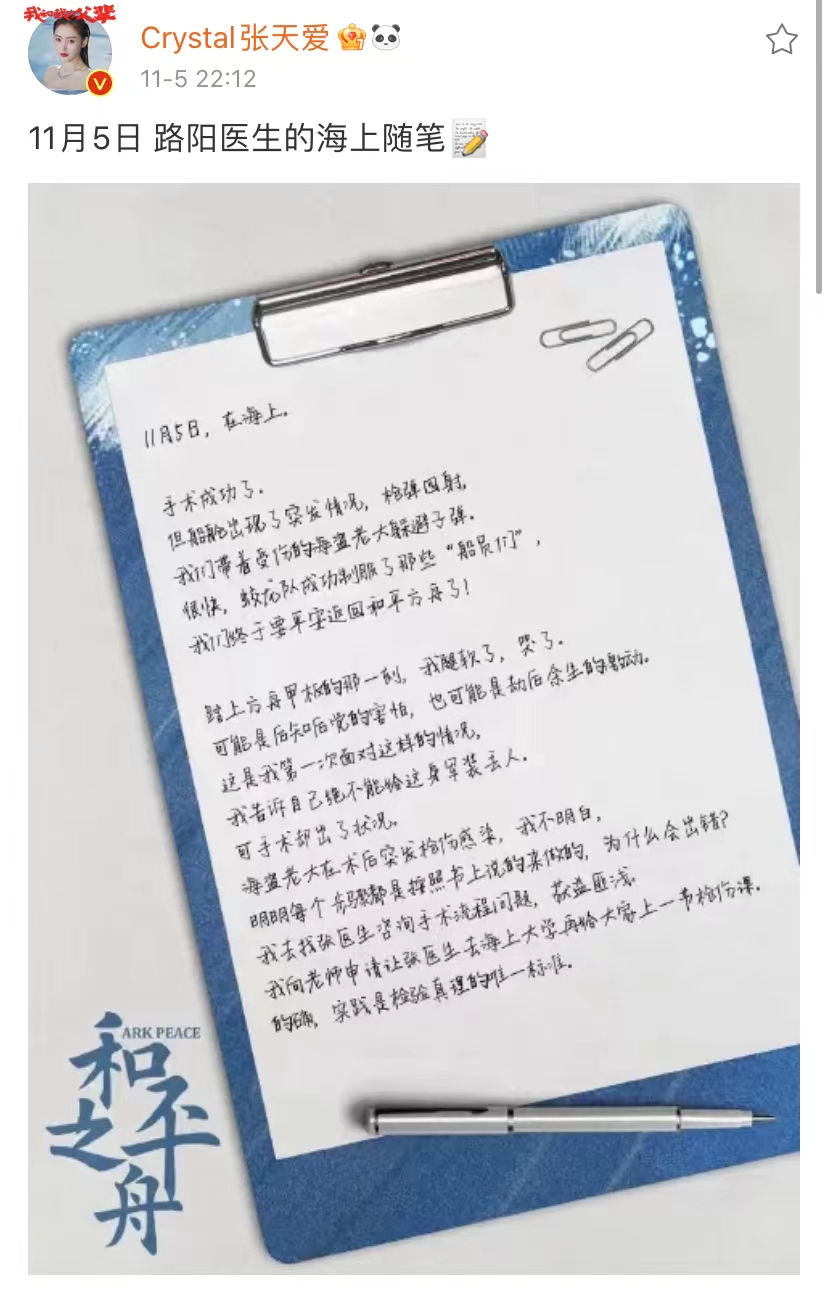 我和我的父辈
Crystal张天爱
11-5 22:12
11月5日 路阳医生的海上随笔
11月5日，在海上。
手术成功了。
但船舱出现了突发情况，枪弹四射，
我们带着受伤的海盗老大躲避子弹。
很快，蛟龙队成功制服了那些“船员们”，
我们终于要平安返回和平方舟了！
踏上方舟甲板的那一刻，我腿软了，哭了。
可能是后知后觉的害怕，也可能是劫后余生的激动。
这是我第一次面对这样的情况。
我告诉自己绝不能给这身军装丢人。
可手术却出了状况。
海盗老大在术后突发枪伤感染，我不明白，
明明每个步骤都是按照书上说的来做的，为什么会出错？
我去找张医生咨询手术流程问题，获益匪浅。
我向老师申请让张医生去海上大学再给大家上一节枪伤课。
的确，实践是检验真理的唯一标准。
ARK PEACE
和平之舟